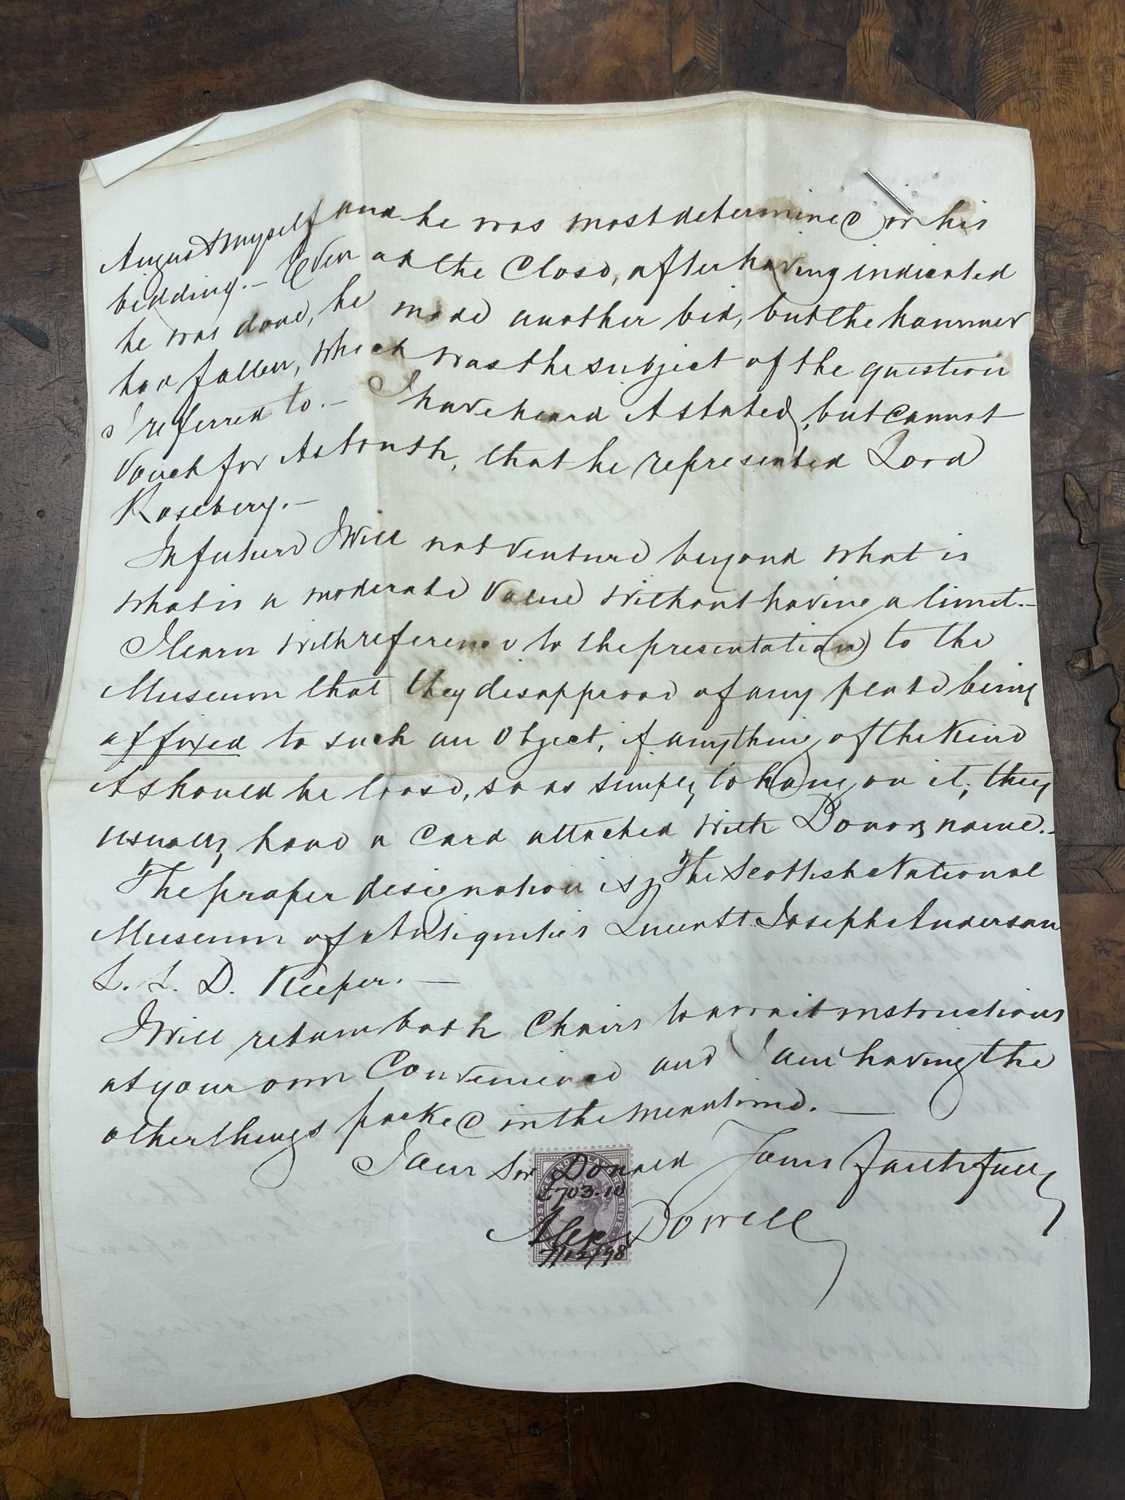 August & myself and he was most determined in his
bidding.— Even at the Close, after having indicated
he was done, he made another bid, but the hammer
had fallen, which was the subject of the question
I referred to.— I have heard it stated, but cannot
vouch for its truth, that he represented Lord
Rosebery.—
In future I will not venture beyond what is
what is a moderate value without having a limit.—
I learn with reference to the presentation to the
Museum that they disapprove of any plate being
affixed to such an object, if anything of the kind
it should be loose, so as simply to hang on it, they
usually have a card attached with Donors name.—
The proper designation is, The Scottish National
Museum of Antiquities Queen St. Joseph Anderson
L. L. D. Keeper.—
I will return both Chairs to await instructions
at your own Convenience and I am having the
other things packed in the meantime.—
I am Sir Donald Yours faithfully
£703.10
Alex Dowell
7/12/98